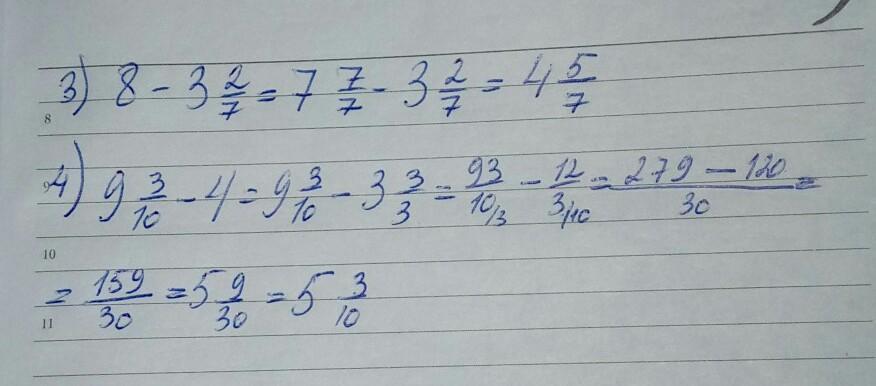 3) 8 - 3 2/7 = 7 7/7 - 3 2/7 = 4 5/7
8
9 4) 9 3/10 - 4 = 9 3/10 - 3 3/3 = 93/10/3 - 12/3/10 = 279 - 120/30 =
10
= 159/30 = 5 9/30 = 5 3/10
11